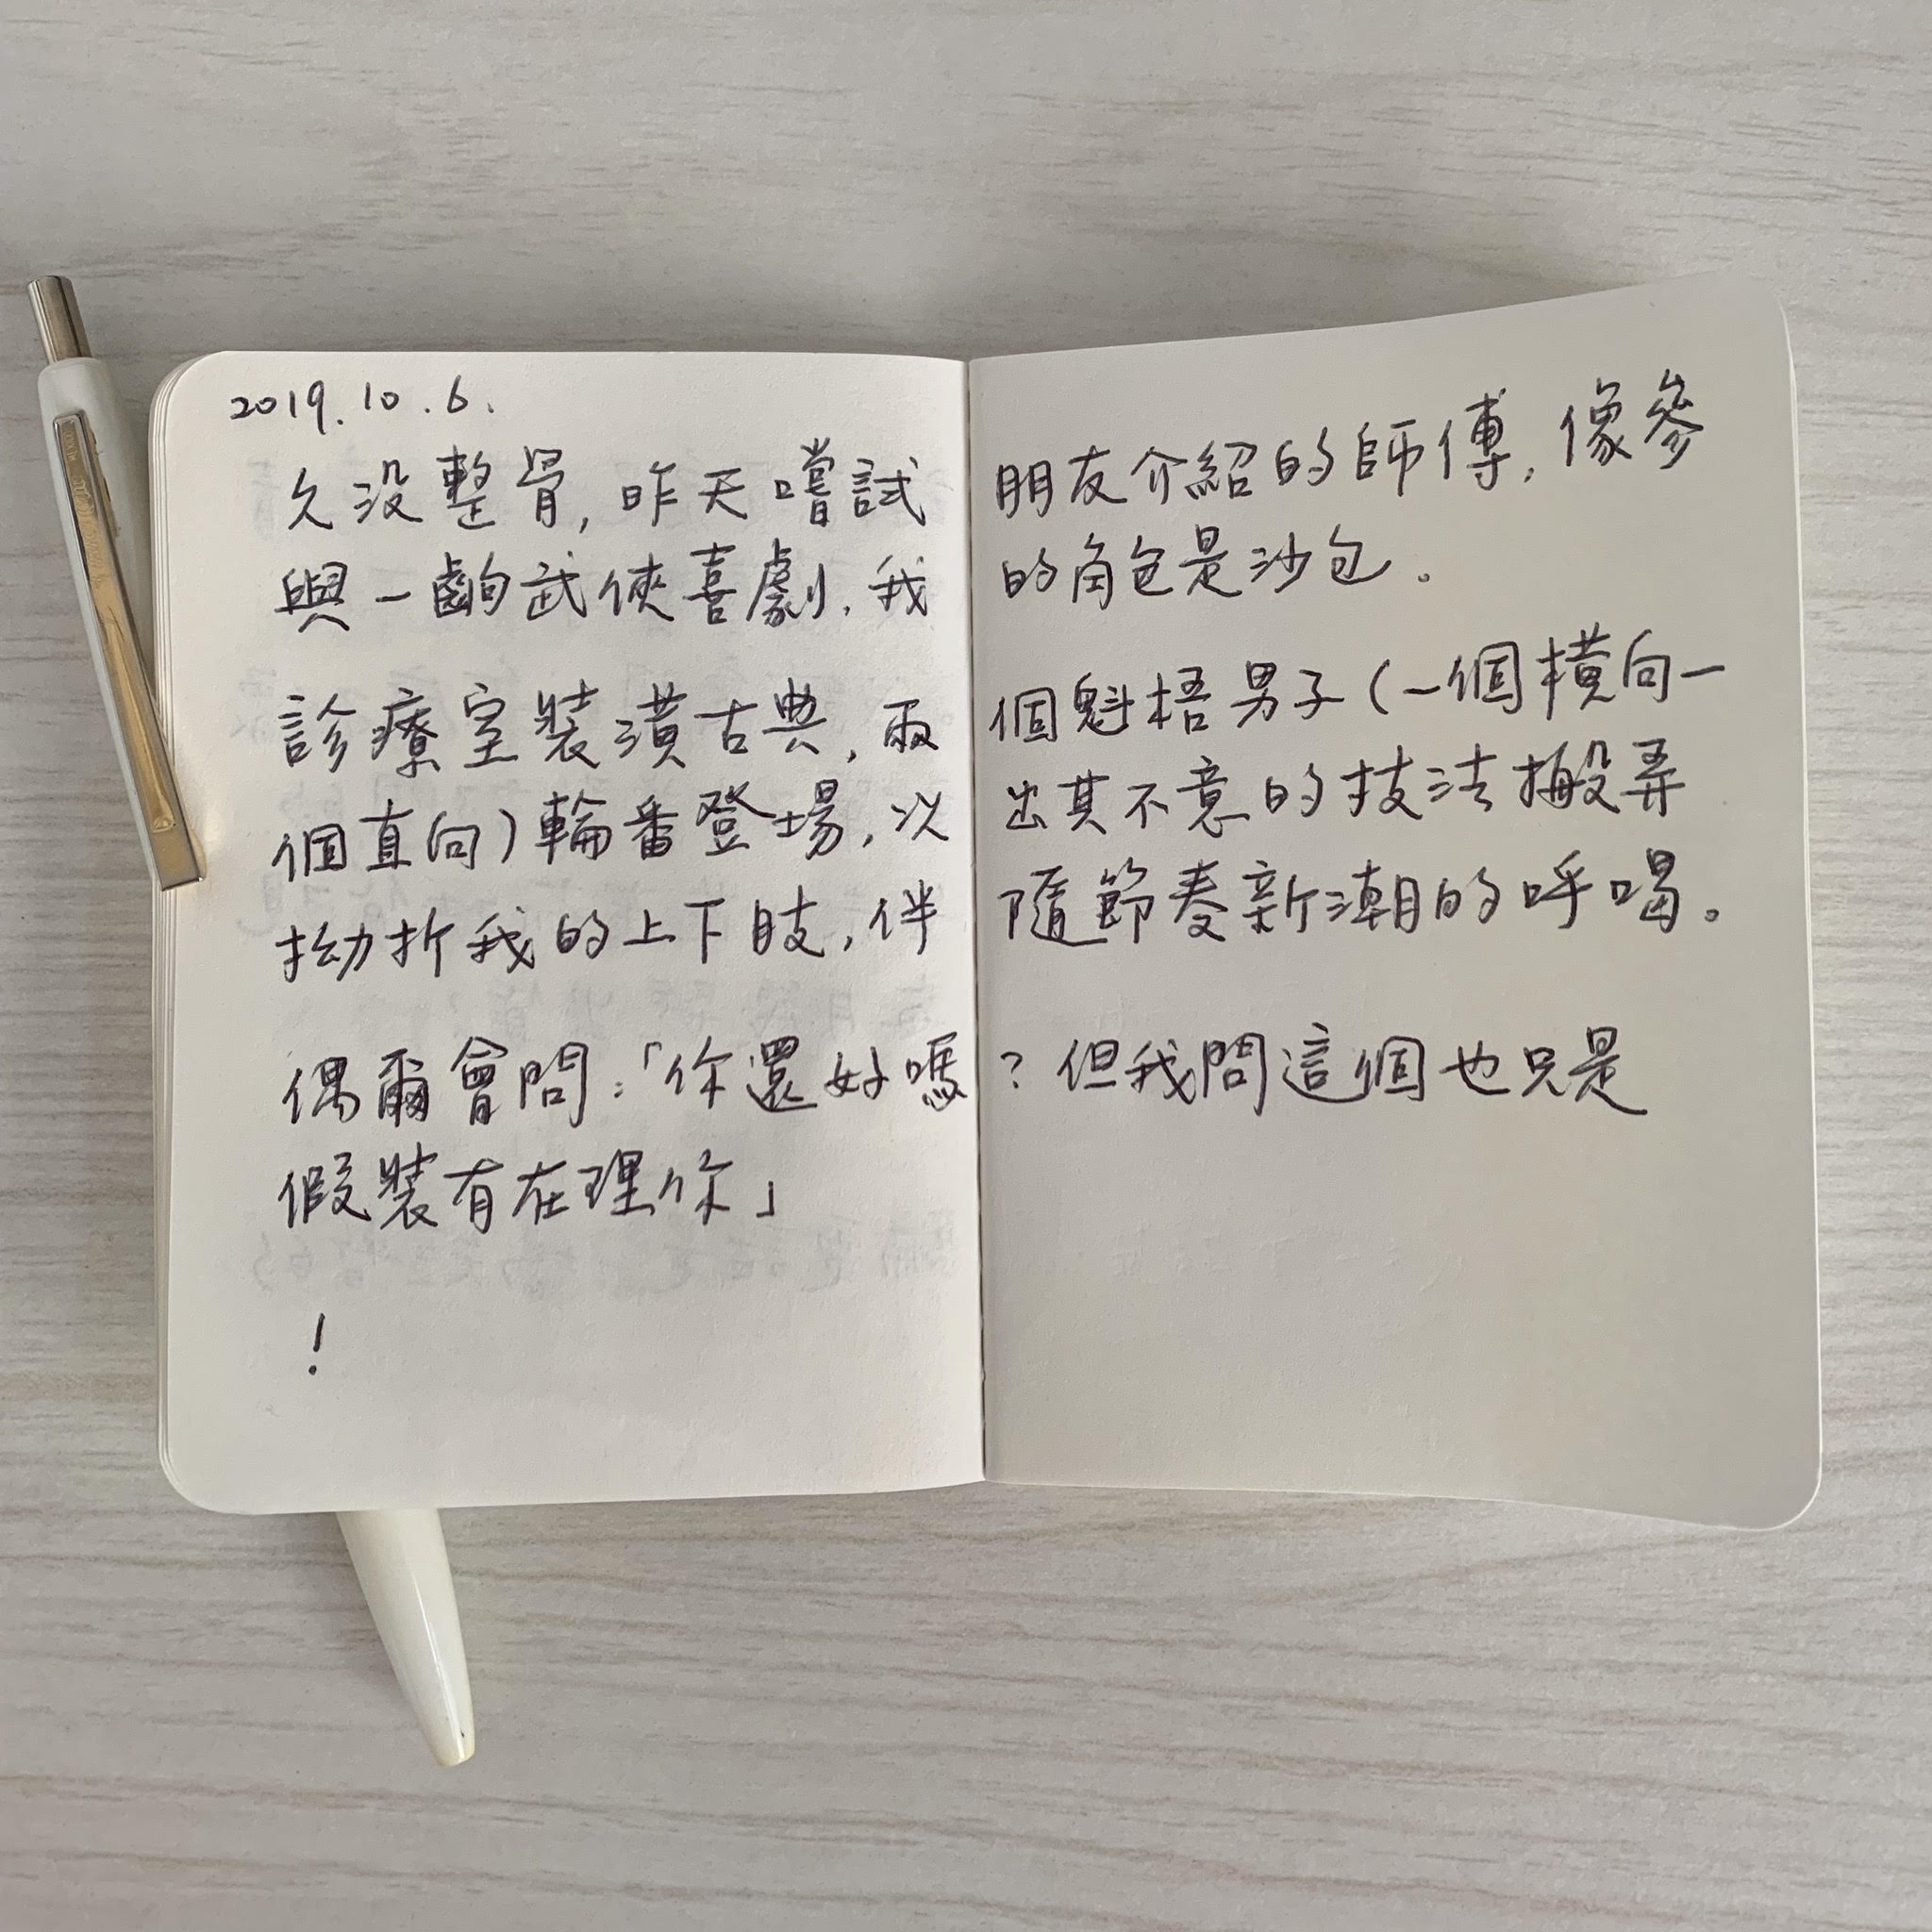 2019.10.6.
久沒整骨,昨天嚐試朋友介紹的師傅,像參
與一齣武俠喜劇,我的角色是沙包。
診療室裝潢古典,兩個魁梧男子(一個橫向一
個直向)輪番登場,以出其不意的技法搬弄
拗折我的上下肢,伴隨節奏新潮的呼喝。
偶爾會問:「你還好嗎?但我問這個也只是
假裝有在理你」
!